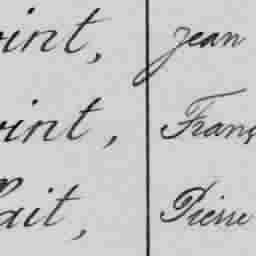 oint, Jean
oint, Franç
Pait, Pierre